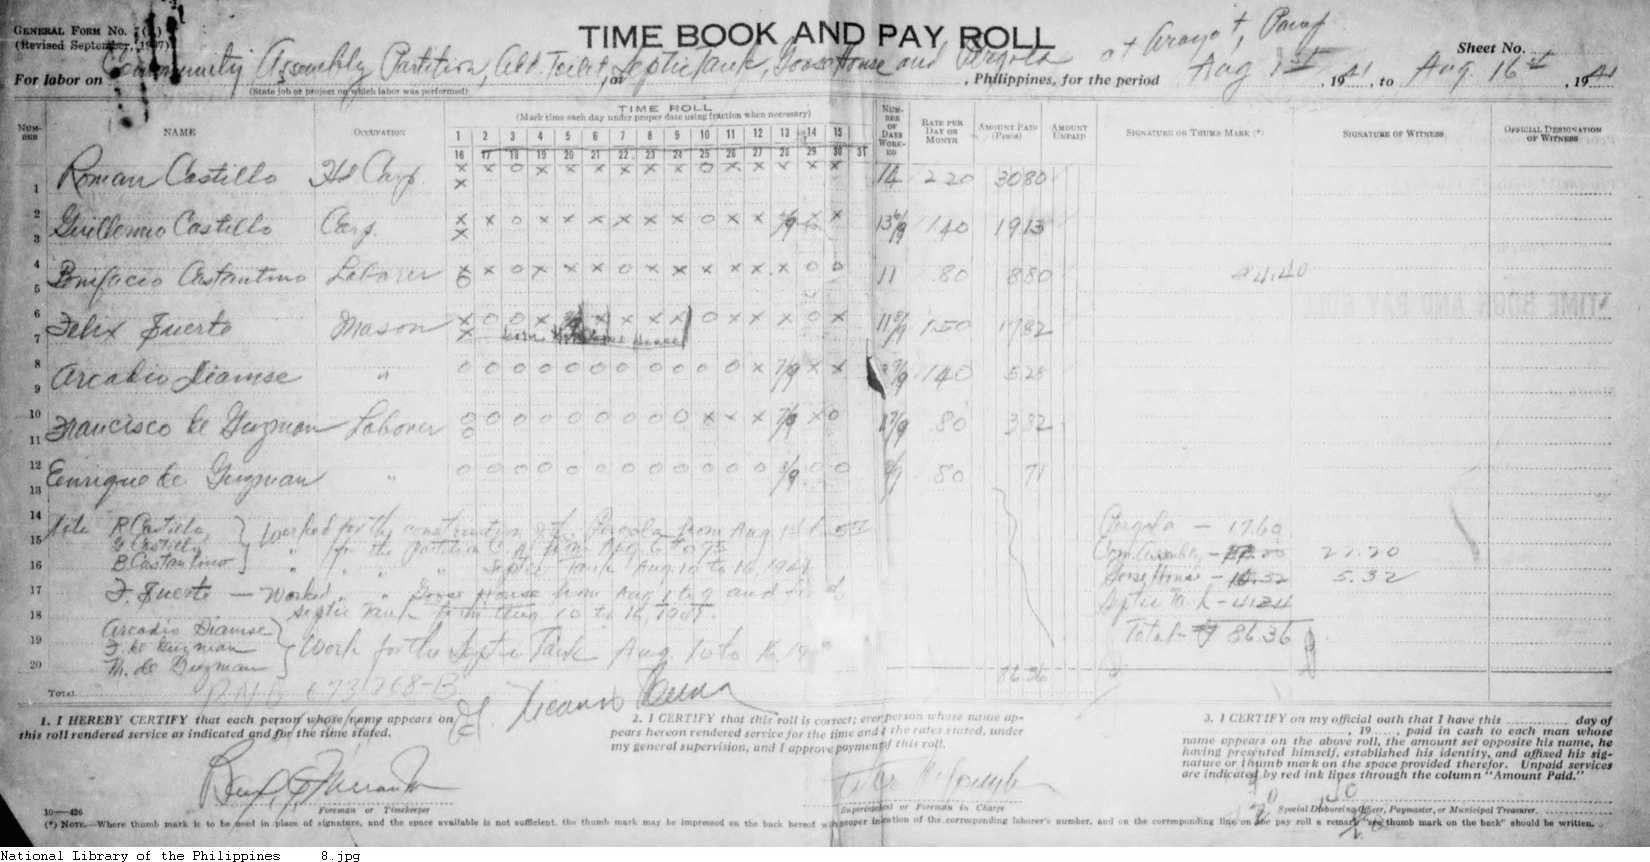 GENERAL FORM No.
(Revised September, 1907)
TIME BOOK AND PAY ROLL
at Arayat, Pamp
Sheet No.
For labor on Community Assembly Partition, Add. Toilet, Septic Tank, House and Pergola, Philippines, for the period Aug 1st, 1941, to Aug. 16th, 1941
(State job or project on which labor was performed)
NUMBER NAME OCCUPATION TIME ROLL NUMBER OF DAYS WORKED RATE PER DAY OR MONTH AMOUNT PAID (Pesos) AMOUNT UNPAID SIGNATURE OR THUMB MARK (*) SIGNATURE OF WITNESS OFFICIAL DESIGNATION OF WITNESS
(Mark time each day under proper date using fraction when necessary)
1 2 3 4 5 6 7 8 9 10 11 12 13 14 15
16 17 18 19 20 21 22 23 24 25 26 27 28 29 30 31
1 Roman Castillo Hd Carp. x x o x x x x x x o x x x x x 14 2 20 30 80
x
2 Guillermo Castillo Carp. x x o x x x x x x o x x x x 13 1 40 19 13
3 x
4 Bonifacio Castantino Laborer x x o x x x o x x x x x x o o 11 80 8 80 4.40
5 o
6 Felix Fuerto Mason x o o x x x x x o x x x o x 11 1 50 17 82
7 x
8 Arcadio Diamse " o o o o o o o o o o o x 7/9 x x 1 40 5 28
9
10 Francisco de Guzman Laborer o o o o o o o o o x x x 7/9 x o 80 3 82
11 o
12 Enrique de Guzman " o o o o o o o o o o o o 8/9 o o 8/9 80 71
13
14 Note R. Castillo Worked for the construction of the Pergola from Aug 1st to 5th Pergola - 17.60
15 G. Castillo " for the partition C. A. from Aug 6 to 9 Com. Assembly - 22.20
16 B. Castantino " " " " Septic Tank Aug. 10 to 16, 1941 House - 5.32
17 F. Fuerto - Worked " " House from Aug 1 to 9 and for the Septic Tank - 41.24
18 Septic Tank from Aug 10 to 16, 1941.
Total 86.36
19 Arcadio Diamse
F. de Guzman Work for the Septic Tank Aug. 10 to 16 19
20 M. de Guzman 86 36
TOTAL P.N.B 673768-B
1. I HEREBY CERTIFY that each person whose name appears on
this roll rendered service as indicated and for the time stated.
2. I CERTIFY that this roll is correct; every person whose name ap-
pears hereon rendered service for the time and at the rates stated, under
my general supervision, and I approve payment of this roll.
3. I CERTIFY on my official oath that I have this ............ day of
......................, 19......, paid in cash to each man whose
name appears on the above roll, the amount set opposite his name, he
having presented himself, established his identity, and affixed his sig-
nature or thumb mark on the space provided therefor. Unpaid services
are indicated by red ink lines through the column "Amount Paid."
10—426
Foreman or Timekeeper
Superintendent or Foreman in Charge
Special Disbursing Officer, Paymaster, or Municipal Treasurer.
(*) NOTE.—Where thumb mark is to be used in place of signature, and the space available is not sufficient, the thumb mark may be impressed on the back hereof with proper indication of the corresponding laborer's number, and on the corresponding line on the pay roll a remark "see thumb mark on the back" should be written.
TIME BOOK AND PAY ROLL
National Library of the Philippines 8.jpg